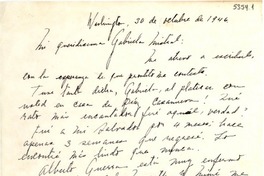 5554 1
Washington, 30 de octubre de 1946
Mi queridísima Gabriela Mistral:
Me atrevo a escribirle,
con la esperanza de que pronto me conteste.
Tuve tanto deleite, Gabriela, al platicar con
usted en casa de Casanueva! Que
rato más encantador fué aquél, verdad?
Fuí a mi Salvador por 4 meses; hace
apenas 3 semanas que regresé. Lo
encontré más lindo que nunca.
Alberto Guerra está muy enfermo